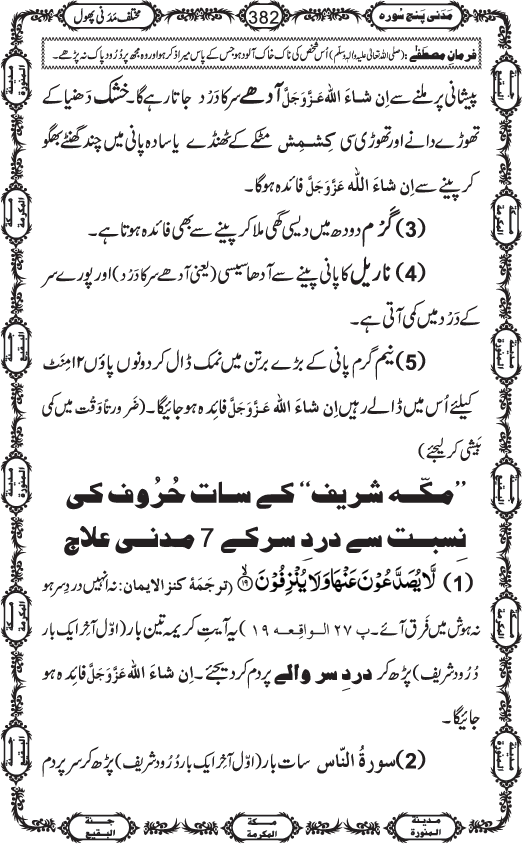 مَدَنی پنج سُورہ
382
مختلف مَدَنی پھول
فرمانِ مصطَفٰے : (صلی اللہ تعالیٰ علیہ والہٖ وسلم) اُس شخص کی ناک خاک آلود ہو جس کے پاس میرا ذکر ہو اور وہ مجھ پر دُرُود پاک نہ پڑھے۔
پیشانی پر ملنے سے اِن شاءَ اللہ عَزَّوَجَلَّ آدھے سر کا دَرْد جاتا رہے گا۔ خشک دَھنیا کے
تھوڑے دانے اور تھوڑی سی کِشمِش مٹکے کے ٹھنڈے یا سادہ پانی میں چند گھنٹے بھگو
کر پینے سے اِن شاءَ اللہ عَزَّوَجَلَّ فائدہ ہوگا۔
(3) گرْم دودھ میں دیسی گھی ملا کر پینے سے بھی فائدہ ہوتا ہے۔
(4) ناریل کا پانی پینے سے آدھا سیسی (یعنی آدھے سر کا دَرْد) اور پورے سر
کے دَرْد میں کمی آتی ہے۔
(5) نیم گرم پانی کے بڑے برتن میں نمک ڈال کر دونوں پاؤں ۱۲ مِنَٹ
کیلئے اُس میں ڈالے رہیں اِن شاءَ اللہ عَزَّوَجَلَّ فائدہ ہو جائیگا۔ (ضَرورتاً وَقْت میں کمی
بَیشی کر لیجئے)
”مکّہ شریف“ کے سات حُرُوف کی
نِسبت سے دردِ سر کے 7 مدنی علاج
(1) لَّا یُصَدَّعُوْنَ عَنْهَا وَ لَا یُنْزِفُوْنَۙ۱۹ (ترجَمۂ کنزالایمان: نہ انہیں دردِ سر ہو
نہ ہوش میں فَرق آئے۔ پ ۲۷ الواقعہ ۱۹) یہ آیتِ کریمہ تین بار (اوّل آخر ایک بار
دُرُود شریف) پڑھ کر دردِ سر والے پر دم کر دیجئے۔ اِن شاءَ اللہ عَزَّوَجَلَّ فائدہ ہو
جائیگا۔
(2) سورۃُ النّاس سات بار (اوّل آخر ایک بار دُرُود شریف) پڑھ کر سر پر دم
مدینۃ المنورۃ
مکۃ المکرمۃ
جنۃ البقیع
مدینۃ المنورۃ
مکۃ المکرمۃ
جنۃ البقیع
جنۃ البقیع
مکۃ المکرمۃ
مدینۃ المنورۃ
جنۃ البقیع
مکۃ المکرمۃ
مدینۃ المنورۃ
مدینۃ المنورۃ
مکۃ المکرمۃ
جنۃ البقیع